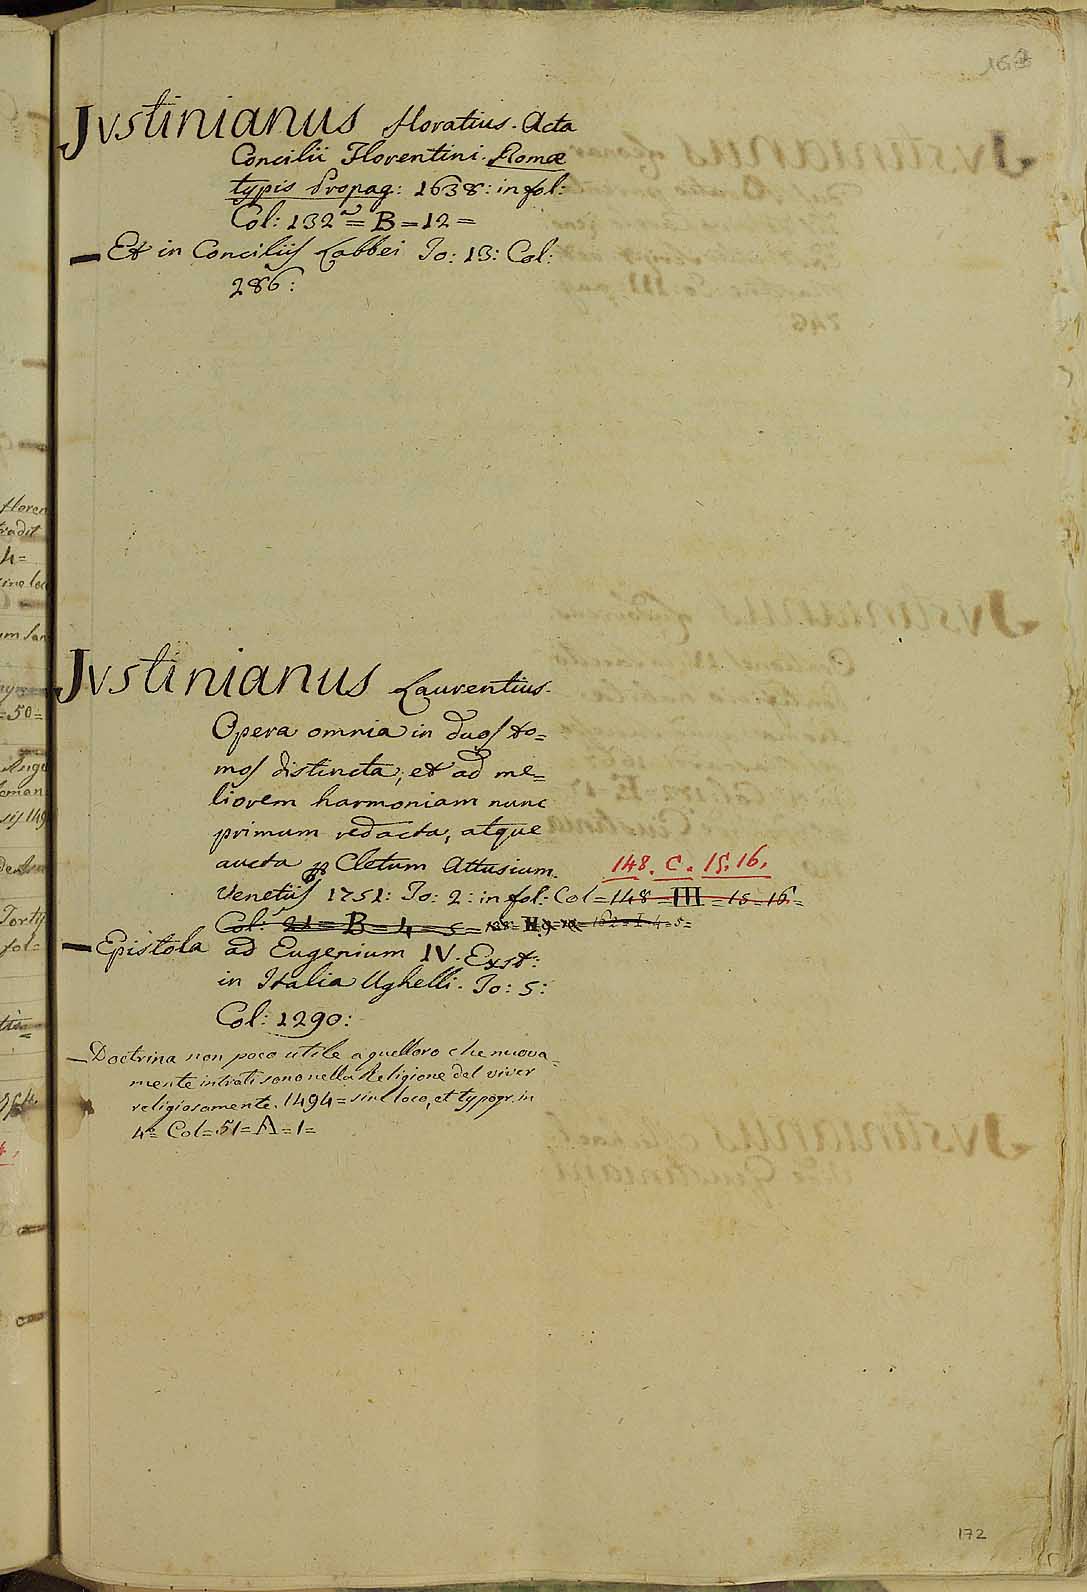 Justinianus Horatius. Acta
Concilii Florentini. Romæ
typis Propag: 1638: in fol:
Col: 132 = B = 12 =
Et in Conciliis Labbei To: 13: Col:
286:
Justinianus Laurentius.
Opera omnia in duos to=
mos distincta, et ad me=
liorem harmoniam nunc
primum redacta, atque
aucta per Cletum Attusium.
148. C. 15. 16.
Venetiis 1751: To: 2: in fol: Col = 148 = III = 15 = 16 =
Col: 21 = B = 4 = 5 = 162 = I = 4 = 5 =
Epistola ad Eugenium IV. Exst:
in Italia Ughelli. To: 5:
Col: 1290:
Doctrina non poco utile a quelloro che nuova=
mente intrati sono nella Religione del viver
religiosamente. 1494 = sine loco, et typogr. in
4º Col = 51 = A = 1 =
172